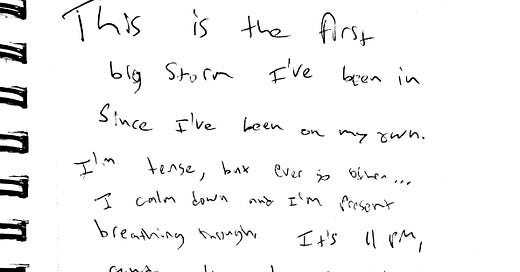 This is the first
big storm I've been in
Since I've been on my own.
I'm tense, but ever so often...
I calm down and I'm present
breathing through. It's 11 PM,